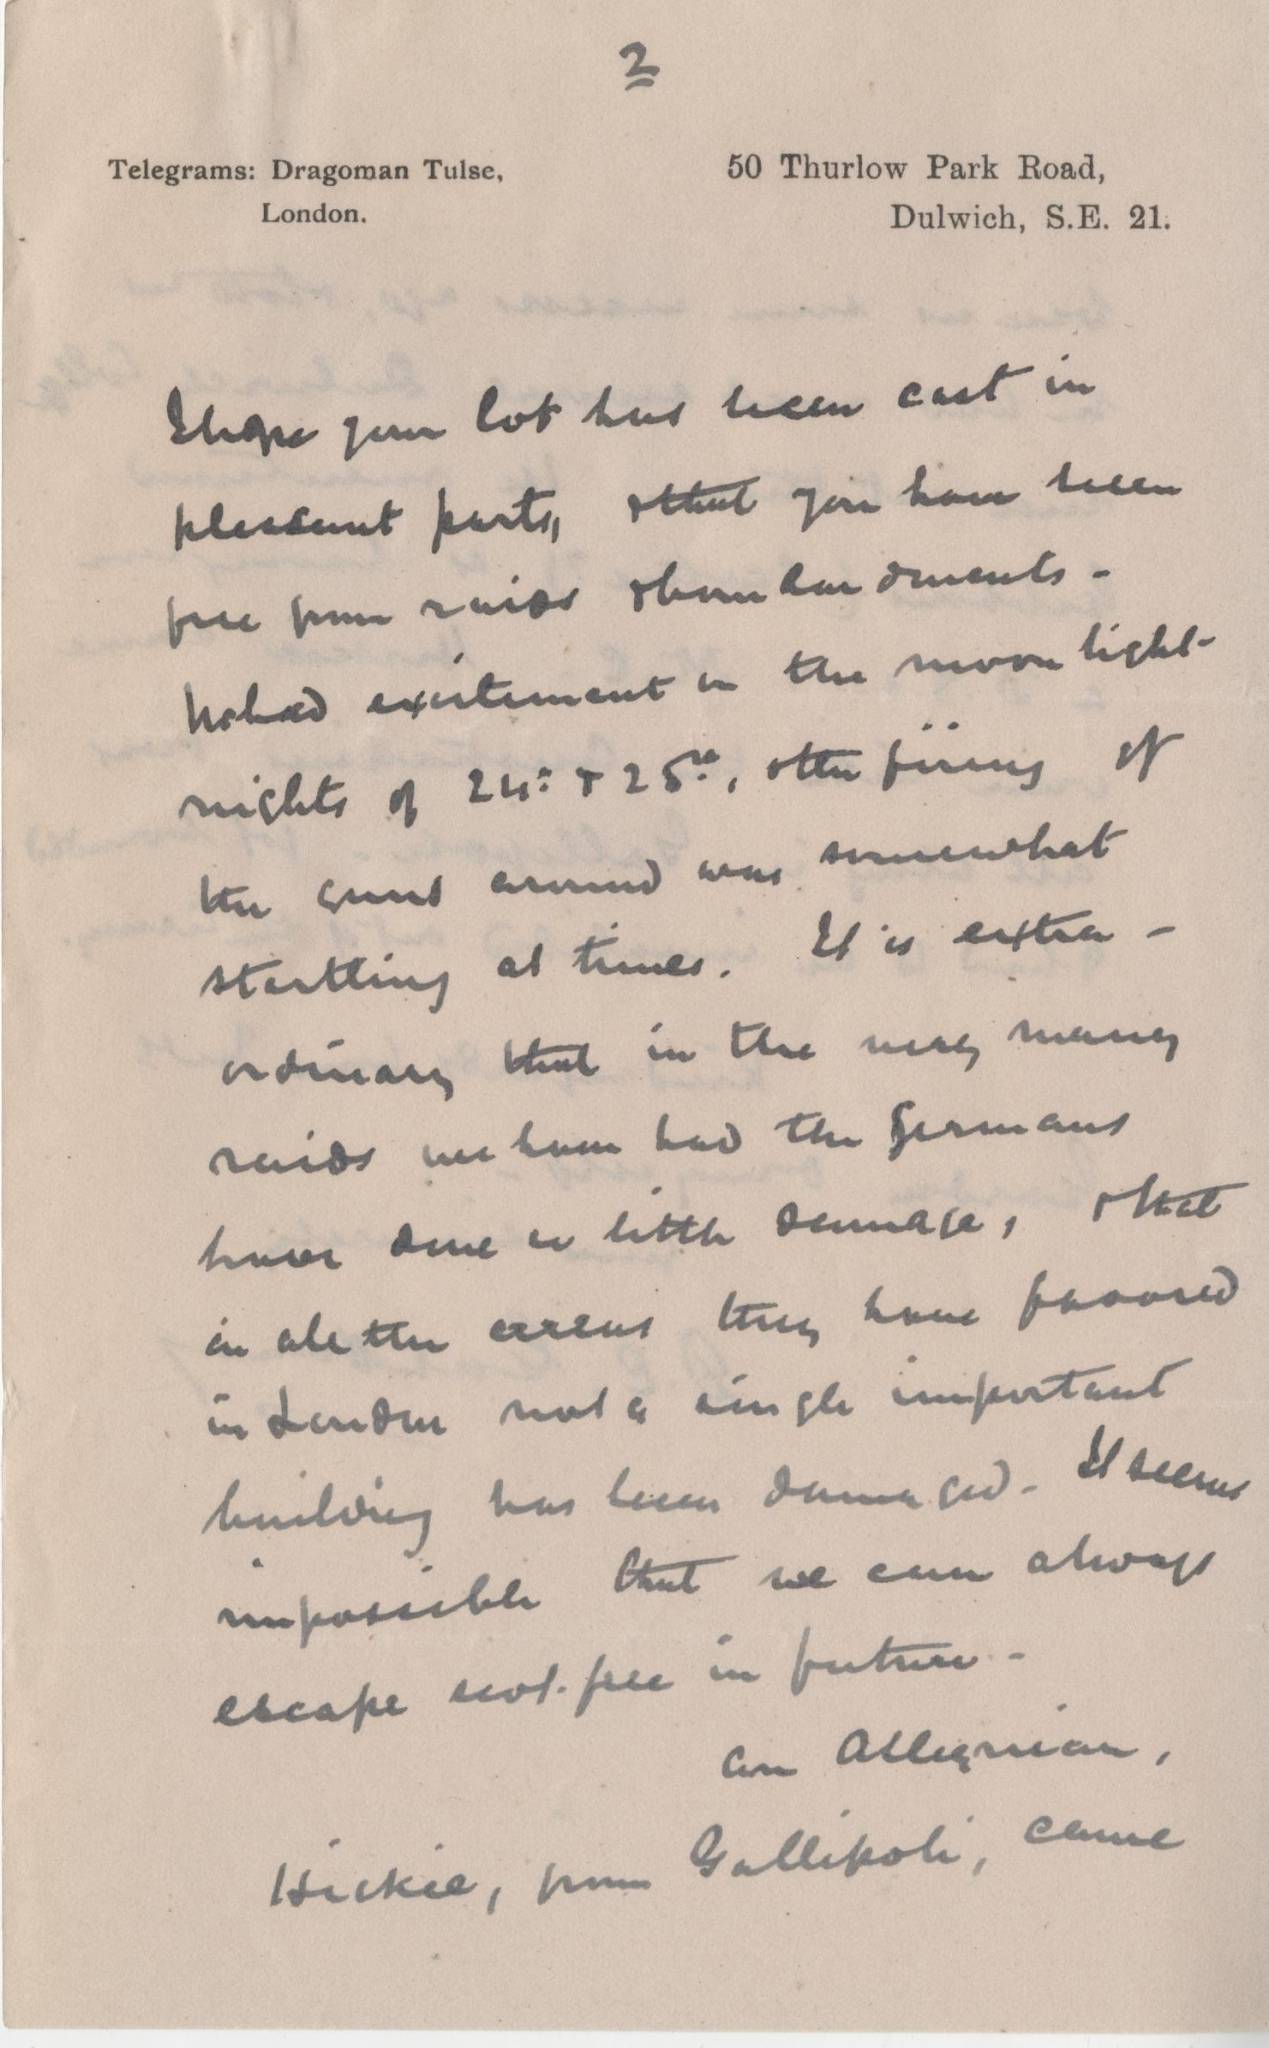 2
Telegrams: Dragoman Tulse,
London.
50 Thurlow Park Road,
Dulwich, S.E. 21.
I hope your lot has been cast in
pleasant parts, & that you have been
free from raids & bombardments -
We had excitement in the moonlight
nights of 24th & 25th, & the firing of
the guns around was somewhat
startling at times. It is extra-
ordinary that in the very many
raids we have had the Germans
have done so little damage, & that
in all the areas they have favored
in London not a single important
building has been damaged. It seems
impossible that we can always
escape scot-free in future -
An Alleynian,
Hickie, from Gallipoli, came